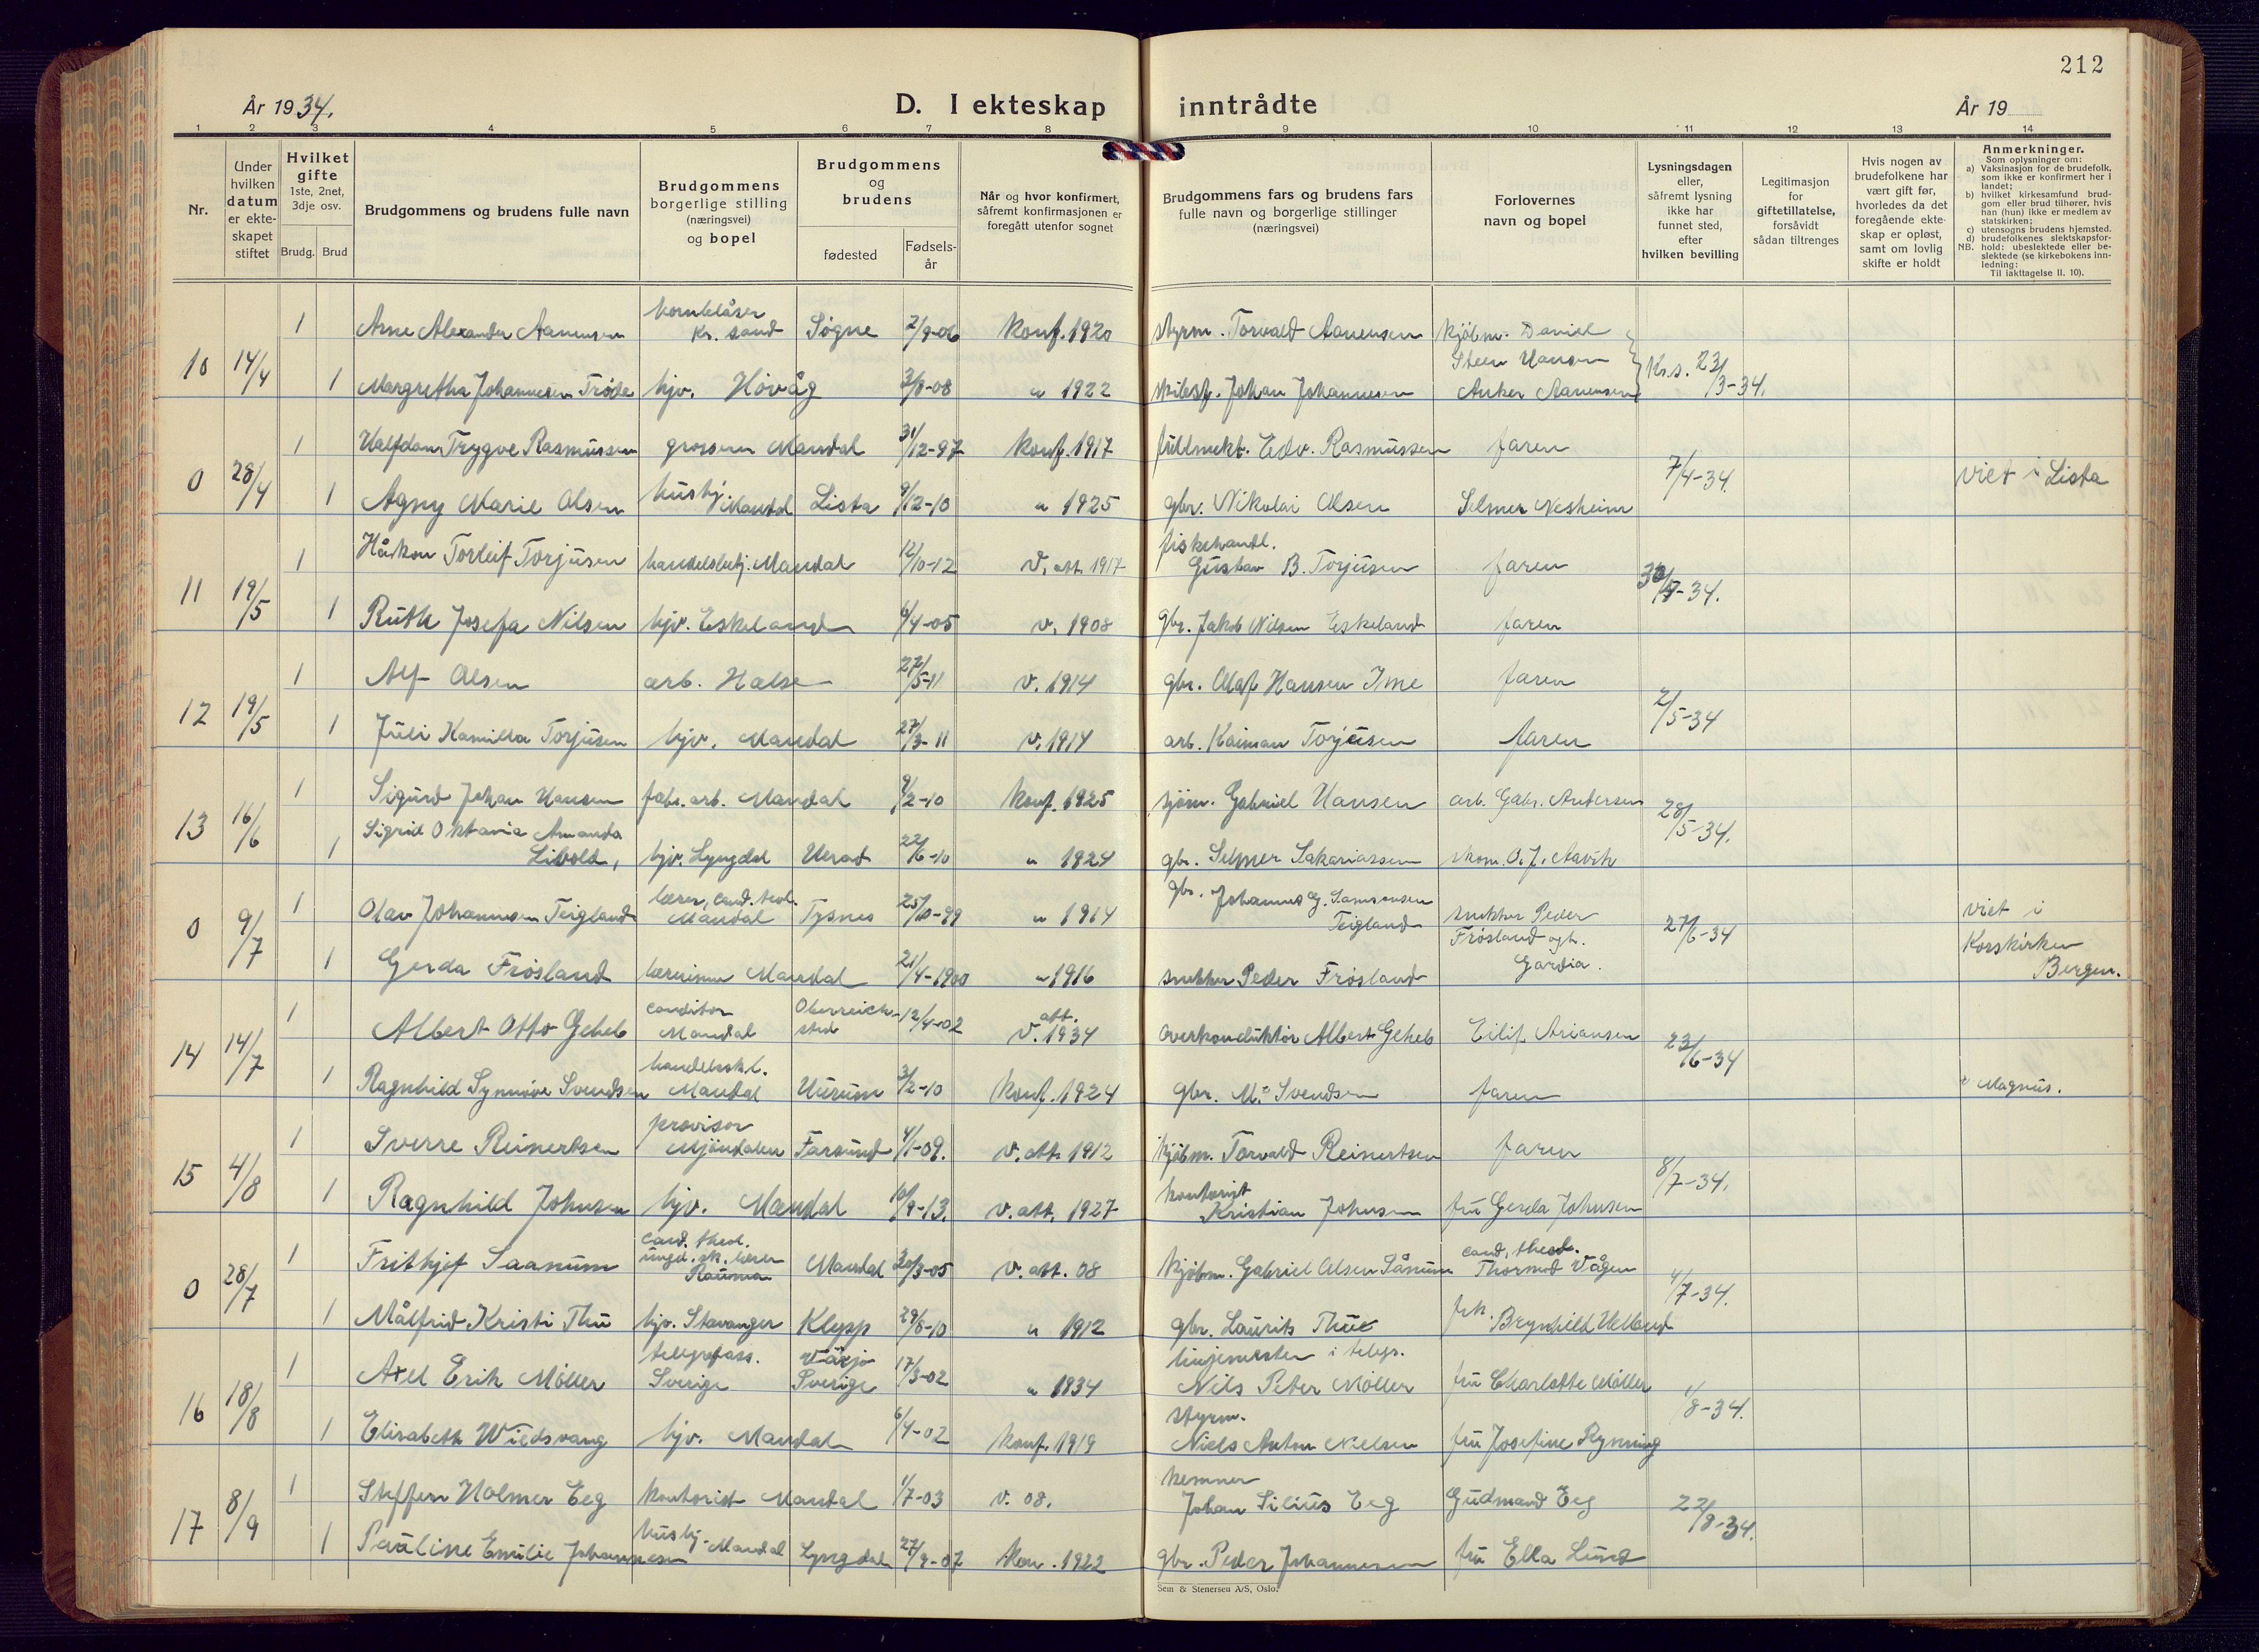 212
År 1934.
D. I ekteskap inntrådte
År 19
1 2 3 4 5 6 7 8 9 10 11 12 13 14
Nr.
Under hvilken datum er ekteskapet stiftet
Hvilket gifte 1ste, 2net, 3dje osv. Brudg. Brud
Brudgommens og brudens fulle navn
Brudgommens borgerlige stilling (næringsvei) og bopel
Brudgommens og brudens fødested Fødselsår
Når og hvor konfirmert, såfremt konfirmasjonen er foregått utenfor sognet
Brudgommens fars og brudens fars fulle navn og borgerlige stillinger (næringsvei)
Forlovernes navn og bopel
Lysningsdagen eller, såfremt lysning ikke har funnet sted, efter hvilken bevilling
Legitimasjon for giftetillatelse, forsåvidt sådan tiltrenges
Hvis nogen av brudefolkene har vært gift før, hvorledes da det foregående ekteskap er opløst, samt om lovlig skifte er holdt
Anmerkninger.
Som oplysninger om:
a) Vaksinasjon for de brudefolk, som ikke er konfirmert her i landet;
b) hvilket kirkesamfund brudgom eller brud tilhører, hvis han (hun) ikke er medlem av statskirken;
c) utensogns brudens hjemsted.
d) brudefolkenes slektskapsforhold: ubeslektede eller beslektede (se kirkebokens innledning:
NB. Til iakttagelse II. 10).
1 Arne Alexander Aanensen hornblåser Kr. sand Søgne 2/9-06 Konf. 1920 styrm. Torvald Aanensen kjøbm. Daniel Steen Hansen
10 14/4 1 Margretha Johannesen Trøde hjv. Høvåg 3/8-08 " 1922 Johan Johannesen Anker Aanensen Kr.s. 23/3-34.
1 Halfdan Trygve Rasmussen grosserer Mandal 31/12-97 Konf. 1917 fullmekt. Edv. Rasmussen faren
0 28/4 1 Agny Marie Olsen hushj. Mandal Lista 9/12-10 " 1925 gbr. Nikolai Olsen Selmer Nesheim 7/4-34. viet i Lista
1 Håkon Torleif Torjusen handelsbetj. Mandal 12/10-12 v. att. 1917 fiskehandl. Gustav B. Torjusen faren
11 19/5 1 Ruth Josefa Nilsen hjv. Eskeland 6/4-05 v. 1908 gbr. Jakob Nilsen Eskeland faren
1 Alf Olsen arb. Halse 27/5-11 v. 1914 gbr. Olaf Hansen Ime faren
12 19/5 1 Juli Kamilla Torjusen hjv. Mandal 27/3-11 v. 1914 arb. Kaiman Torjusen faren 2/5-34
1 Sigurd Johan Hansen fabr. arb. Mandal 9/2-10 Konf. 1925 sjøm. Gabriel Hansen arb. Gabr. Andersen
13 16/6 1 Sigrid Oktavia Amanda Libolt, hjv. Lyngdal 22/6-10 " 1924 gbr. Selmer Sakariassen skom. O. J. Aavik 28/5-34.
1 Olav Johannesen Teigland lærer, cand. teol. Mandal Tysnes 25/10-99 " 1914 gbr. Johannes G. Samsonsen Teigland snekker Peder Frøsland og
0 9/7 1 Gerda Frøsland lærerinne Mandal 21/4-1900 " 1916 snekker Peder Frøsland Gardia. 27/6-34 viet i Korskirken Bergen.
1 Albert Otto Geheb conditor Mandal 12/4-02 v. att. 1934 overkonduktør Albert Geheb Eilif Ariansen
14 14/7 1 Ragnhild Synnøve Svendsen Mandal Uurum 3/2-10 Konf. 1924 gbr. M. Svendsen faren 23/6-34 Magnus.
1 Sverre Reinertsen provisor Mjøndalen Farsund 4/1-09. v. att. 1912 kjøbm. Torvald Reinertsen faren
15 4/8 1 Ragnhild Johnsen hjv. Mandal 10/9-13. v. att. 1927 kontorist Kristian Johnsen fru Gerda Johnsen 8/7-34.
1 Frithjof Saanum cand. theol. ungd. sk. lærer Rauma Mandal 20/3-05 v. att. 08 kjøbm. Gabriel Olsen Sånum cand. theol. Thormod Vågen
0 28/7 1 Målfrid Kristi Thu hjv. Stavanger Klepp 29/8-10 " 1912 gbr. Laurits Thue frk. Brynhild Helland 4/7-34.
1 Axel Erik Möller telegrafass. Sverige Växjö Sverige 17/3-02 " 1934 linjemester i telegr. Nils Peter Möller fru Charlotte Möller
16 18/8 1 Elisabeth Wiedsvang hjv. Mandal 6/4-02 Konf. 1919 styrm. Niels Anton Nielsen fru Josefine Rynning 1/8-34.
1 Steffen Holmer Eeg kontorist Mandal 1/7-03 v. 08. kemner Johan Silius Eeg Gudmand Eeg
17 8/9 1 Pauline Emilie Johannesen hushj. Mandal Lyngdal 27/9-07 Kon. 1922 gbr. Peder Johannesen fru Ella Lund 22/8-34.
Sem & Stenersen A/S, Oslo.